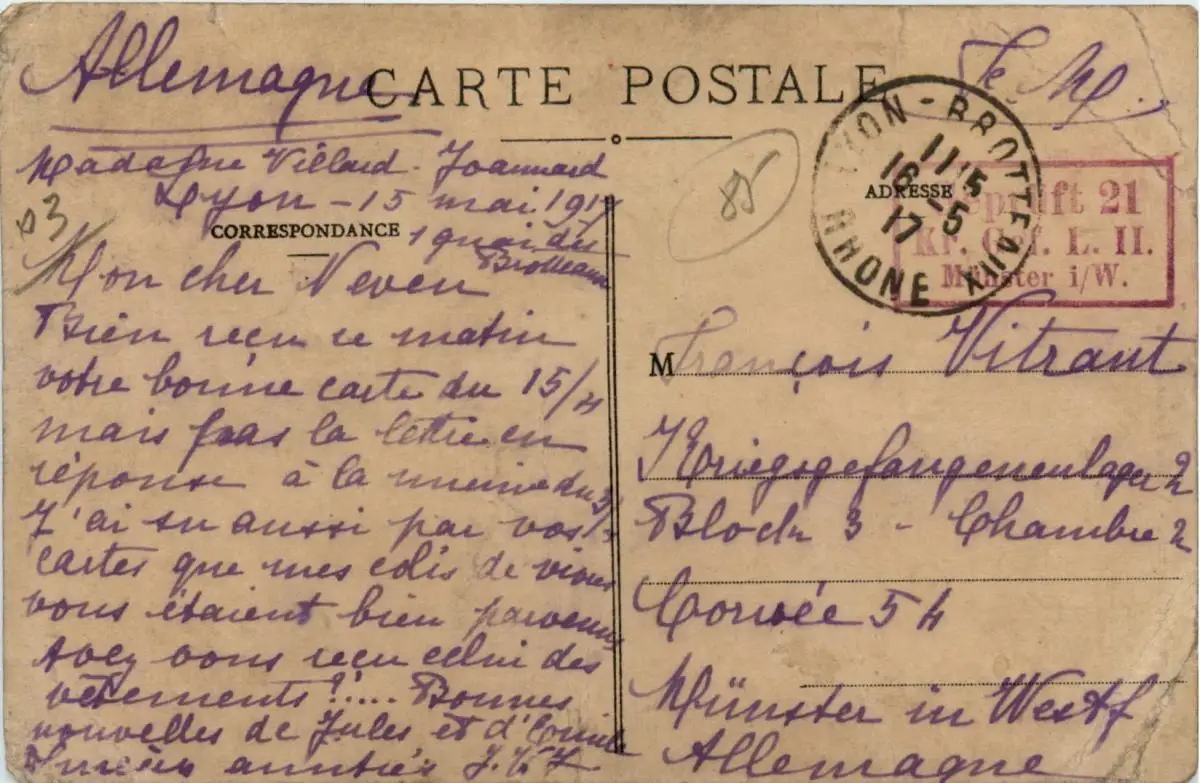 Allemagne
CARTE POSTALE
F. M.
Madame Villard-Joannard
Lyon - 15 mai 1917
1 quai des
Brotteaux
CORRESPONDANCE
83
85
Mon cher Neveu
Bien reçu ce matin
votre bonne carte du 15/4
mais pas la lettre en
réponse à la mienne du
J'ai su aussi par vos
cartes que mes colis de vivres
vous étaient bien parvenus
Avez vous reçu celui des
vêtements?!.... Bonnes
nouvelles de Jules et d'
amitiés J.V.J.
LYON - BROTTEAUX
11 15
16 - 5
17
RHONE
ADRESSE
Geprüft 21
Kr. Gef. L. II.
Münster i/W.
M François Vitrant
Kriegsgefangenenlager 2
Block 3 - Chambre 2
Corvée 54
Münster in Westf
Allemagne